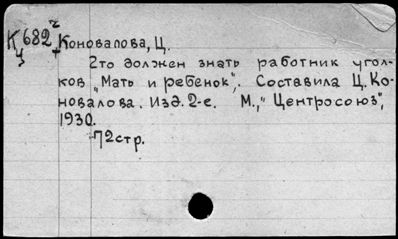 К 682 ч Коновалова, Ц.
Ц
2то должен знать работник угол-
ков „Мать и ребенок“. Составила Ц. Ко-
новалова. Изд. 2-е. М., „Центросоюз“,
1930.
72стр.